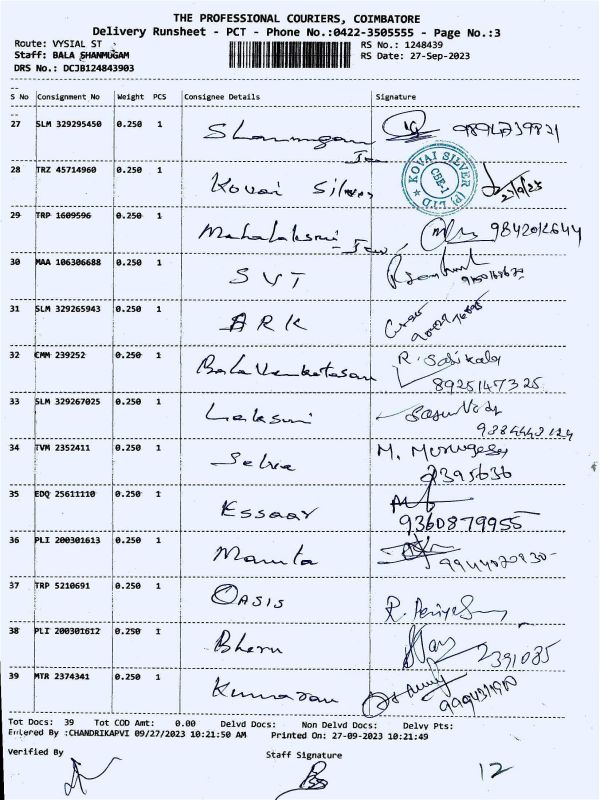 THE PROFESSIONAL COURIERS, COIMBATORE
Delivery Runsheet - PCT - Phone No.:0422-3505555 - Page No.:3
Route: VYSIAL ST RS No.: 1248439
Staff: BALA SHANMUGAM RS Date: 27-Sep-2023
DRS No.: DCJB124843903
S No Consignment No Weight PCS Consignee Details Signature
27 SLM 329295450 0.250 1 Shanmugam
28 TRZ 45714960 0.250 1 Kovai Silver KOVAI SILVER (P) LTD CBE-1
29 TRP 1609596 0.250 1 Mahalaksmi 9842012644
30 MAA 106306688 0.250 1 SVT
31 SLM 329265943 0.250 1 ARK
32 CMM 239252 0.250 1 Bala Venkatesan R. Sasikala
8925147325
33 SLM 329267025 0.250 1 Laksmi
34 TVM 2352411 0.250 1 Selva M. Murugesa
2395636
35 EDQ 25611110 0.250 1 Essaar
9360879955
36 PLI 200301613 0.250 1 Mamta
37 TRP 5210691 0.250 1 Oasis
38 PLI 200301612 0.250 1 Bheru 2391085
39 MTR 2374341 0.250 1 Kumaran
Tot Docs: 39 Tot COD Amt: 0.00 Delvd Docs: Non Delvd Docs: Delvy Pts:
Entered By :CHANDRIKAPVI 09/27/2023 10:21:50 AM Printed On: 27-09-2023 10:21:49
Verified By Staff Signature
12